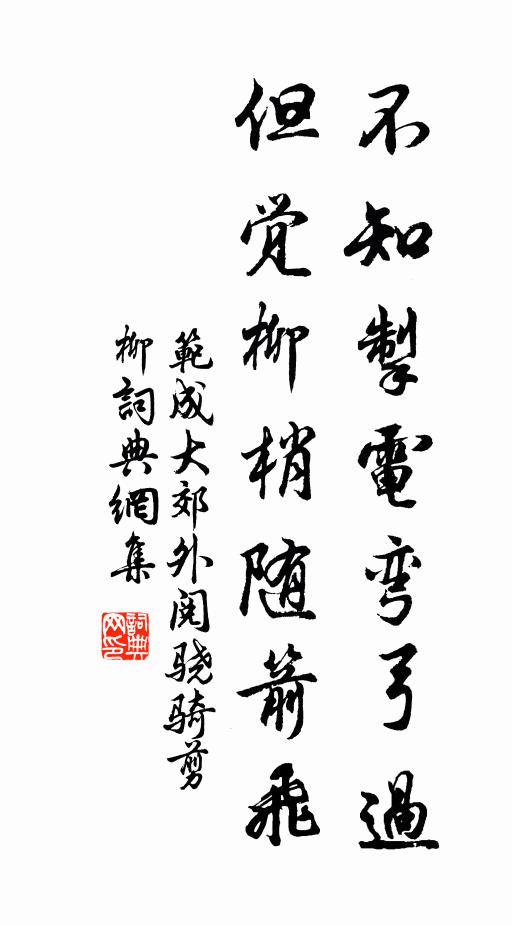 不知掣電弯弓過
但觉柳梢随箭飛
範成大郊外閱骁騎剪
柳詞典網集
詞典
网印